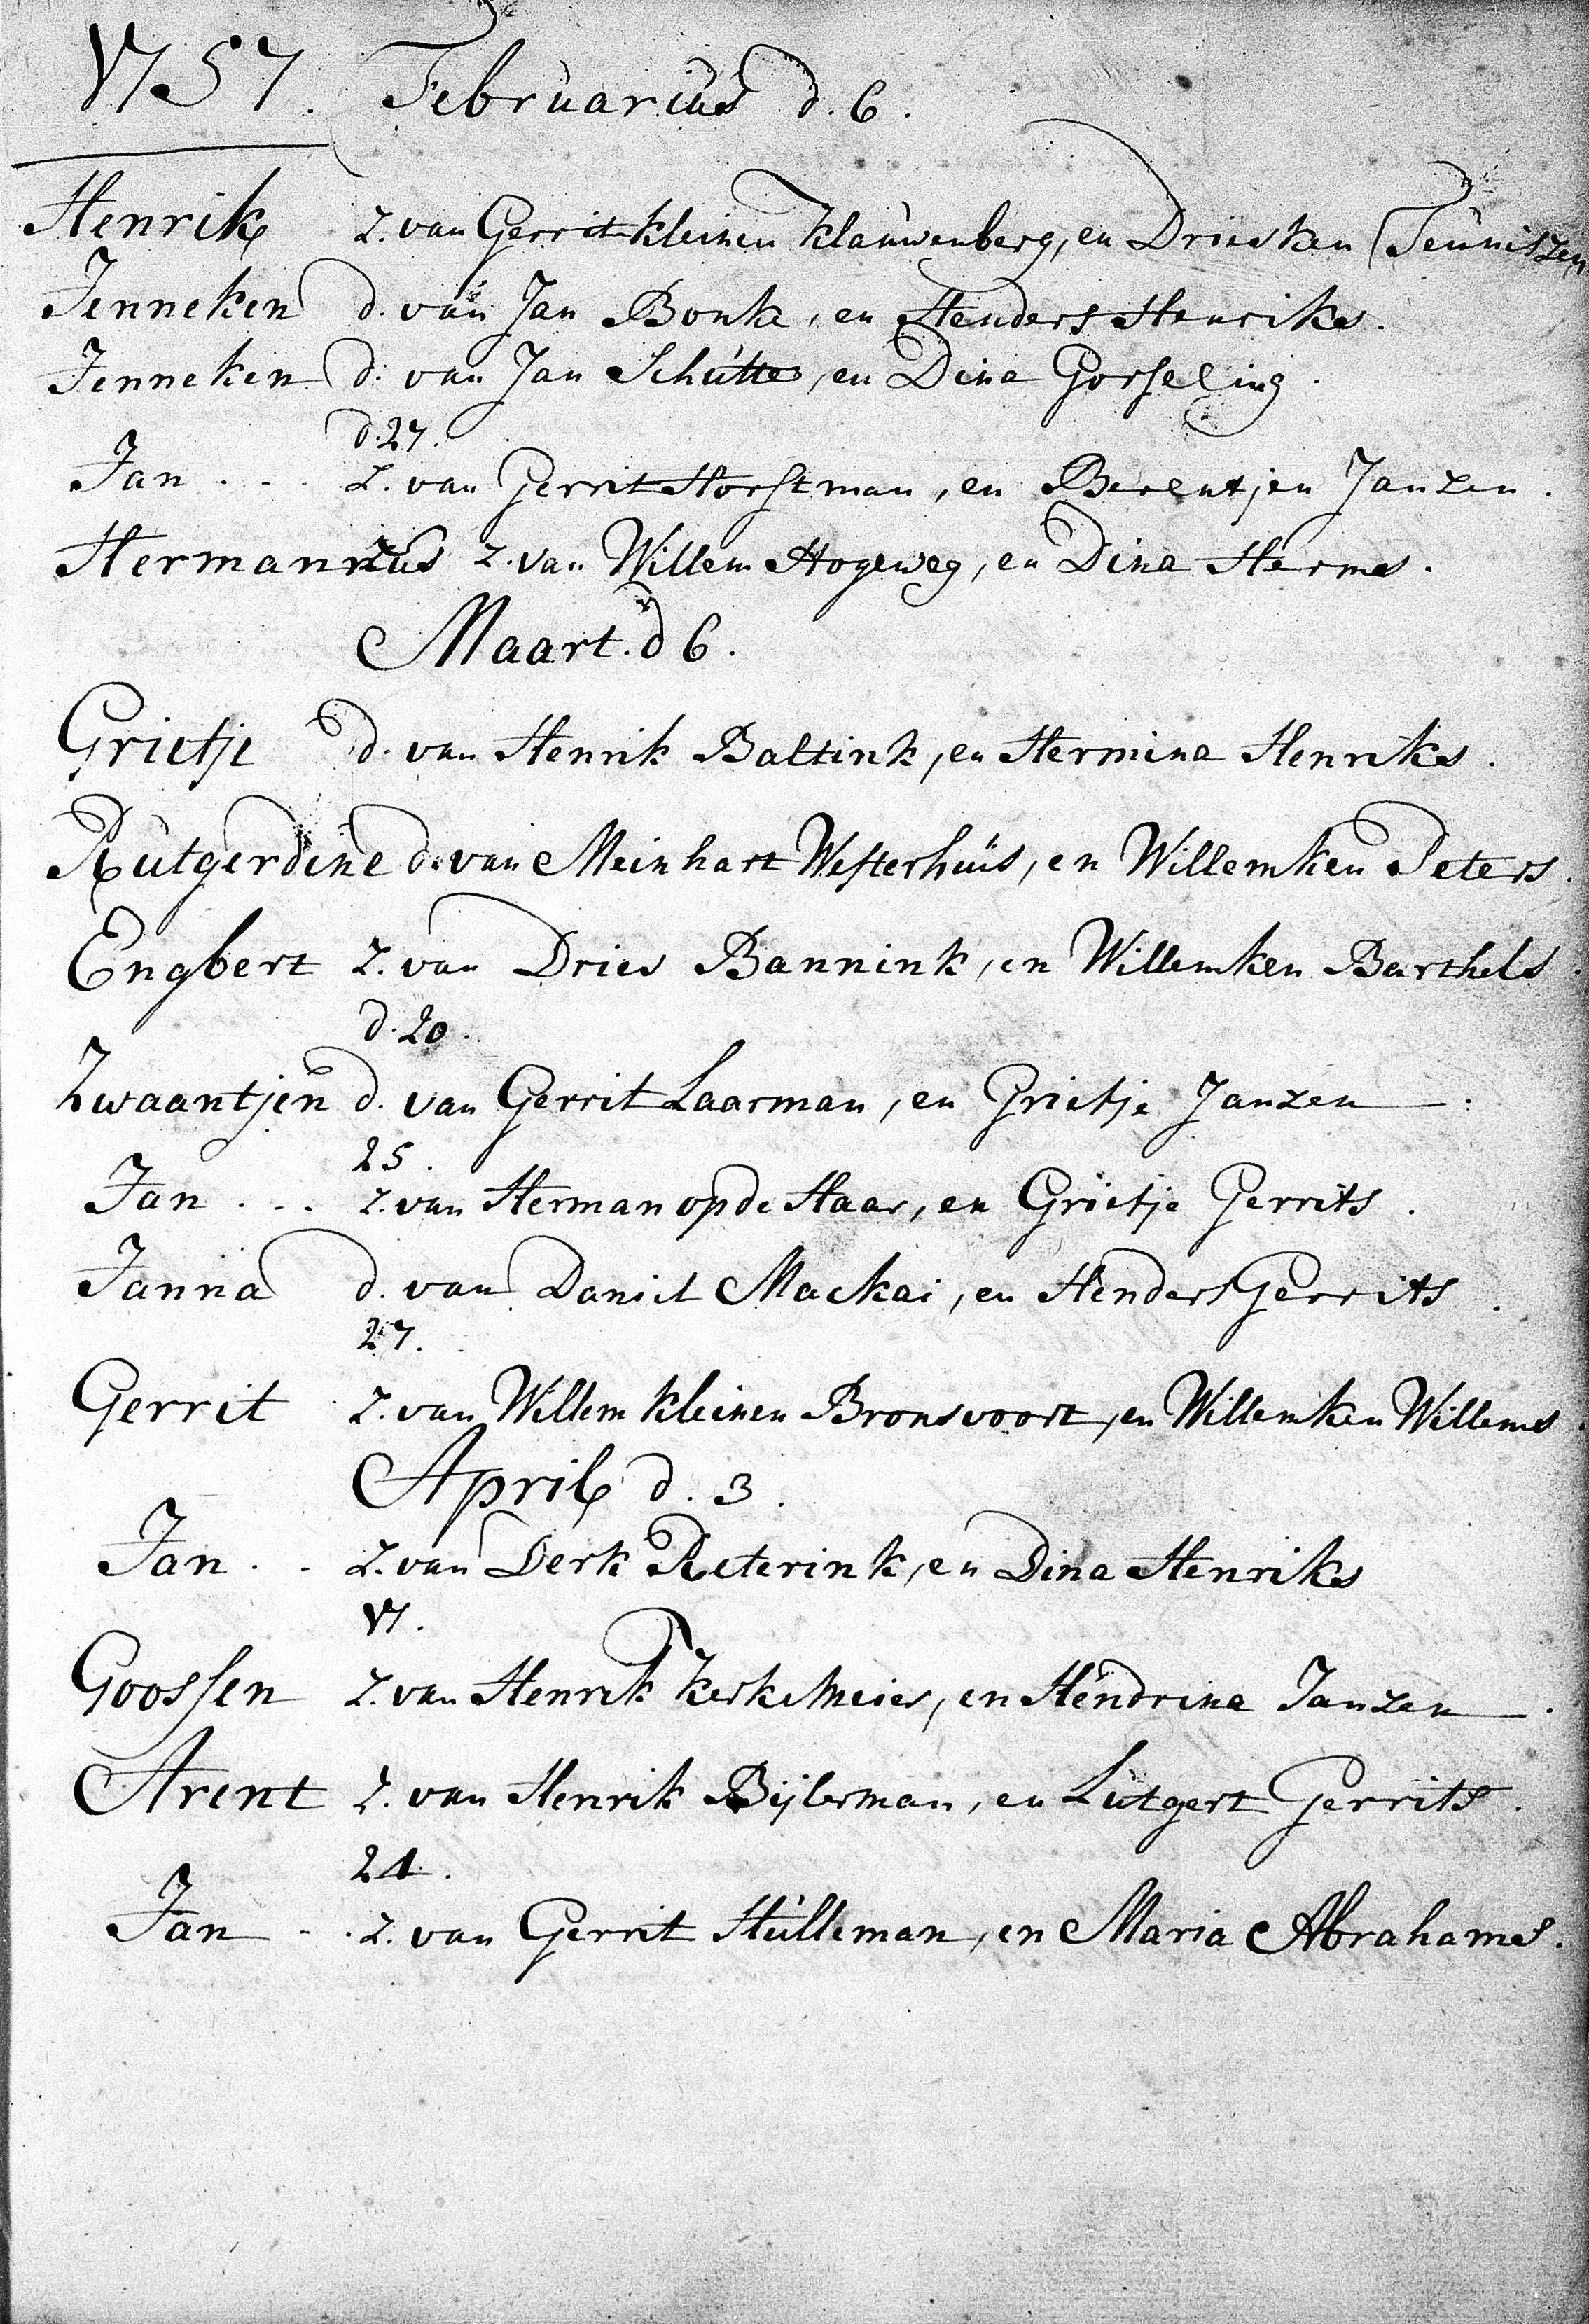 1757. Februarius d. 6.
Henrik z. van Gerrit kleinen Klauwenberg, en Driesken Teuniszen
Jenneken d. van Jan Bonke, en Henders Henriks.
Jenneken d. van Jan Schutte, en Dina Gorseling.
d. 27.
Jan . . . z. van Gerrit Horstman, en Berentjen Janzen.
Hermannus z. van Willem Hogeweg, en Dina Herms.
Maart. d 6.
Grietje d. van Henrik Baltink, en Hermina Henriks.
Rutgerdine d. van Meinhart Westerhuis, en Willemken Peters.
Engbert z. van Dries Bannink, en Willemken Barthels.
d. 20.
Zwaantjen d. van Gerrit Laarman, en Grietje Janzen.
25.
Jan . . . z. van Herman op de Haar, en Grietje Gerrits.
Janna d. van Daniel Mackai, en Henders Gerrits.
27.
Gerrit z. van Willem kleinen Bronsvoort, en Willemken Willems.
April d. 3.
Jan . . z. van Derk Reterink, en Dina Henriks
17.
Goossen z. van Henrik Kerkmeier, en Hendrina Janzen.
Arent z. van Henrik Bijlerman, en Lutgert Gerrits.
24.
Jan . . z. van Gerrit Hulleman, en Maria Abrahams.